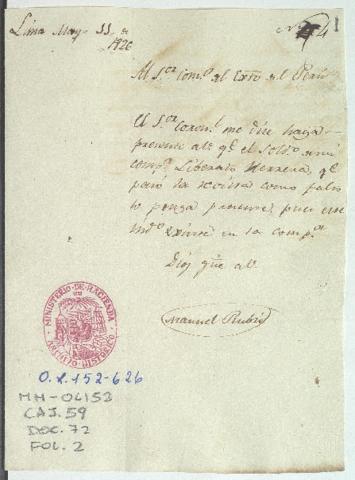 Lima Mayo 11 de
1826
Al S.or Com.º el Exto. el Perú
El S.or Coron.l me dice haga
presente a V. q.e el Sold.º de mi
comp.a Liberato Herrera, q.e
pasó la revista como falso
lo ponga presente, pues este
indº existe en la comp.a
Dios gũe a V.
Manuel Rubio
MINISTERIO-DE-HACIENDA
ARCHIVO-HISTORICO
O.L.152-626
MH-04152
CAJ.59
DOC.72
FOL.2